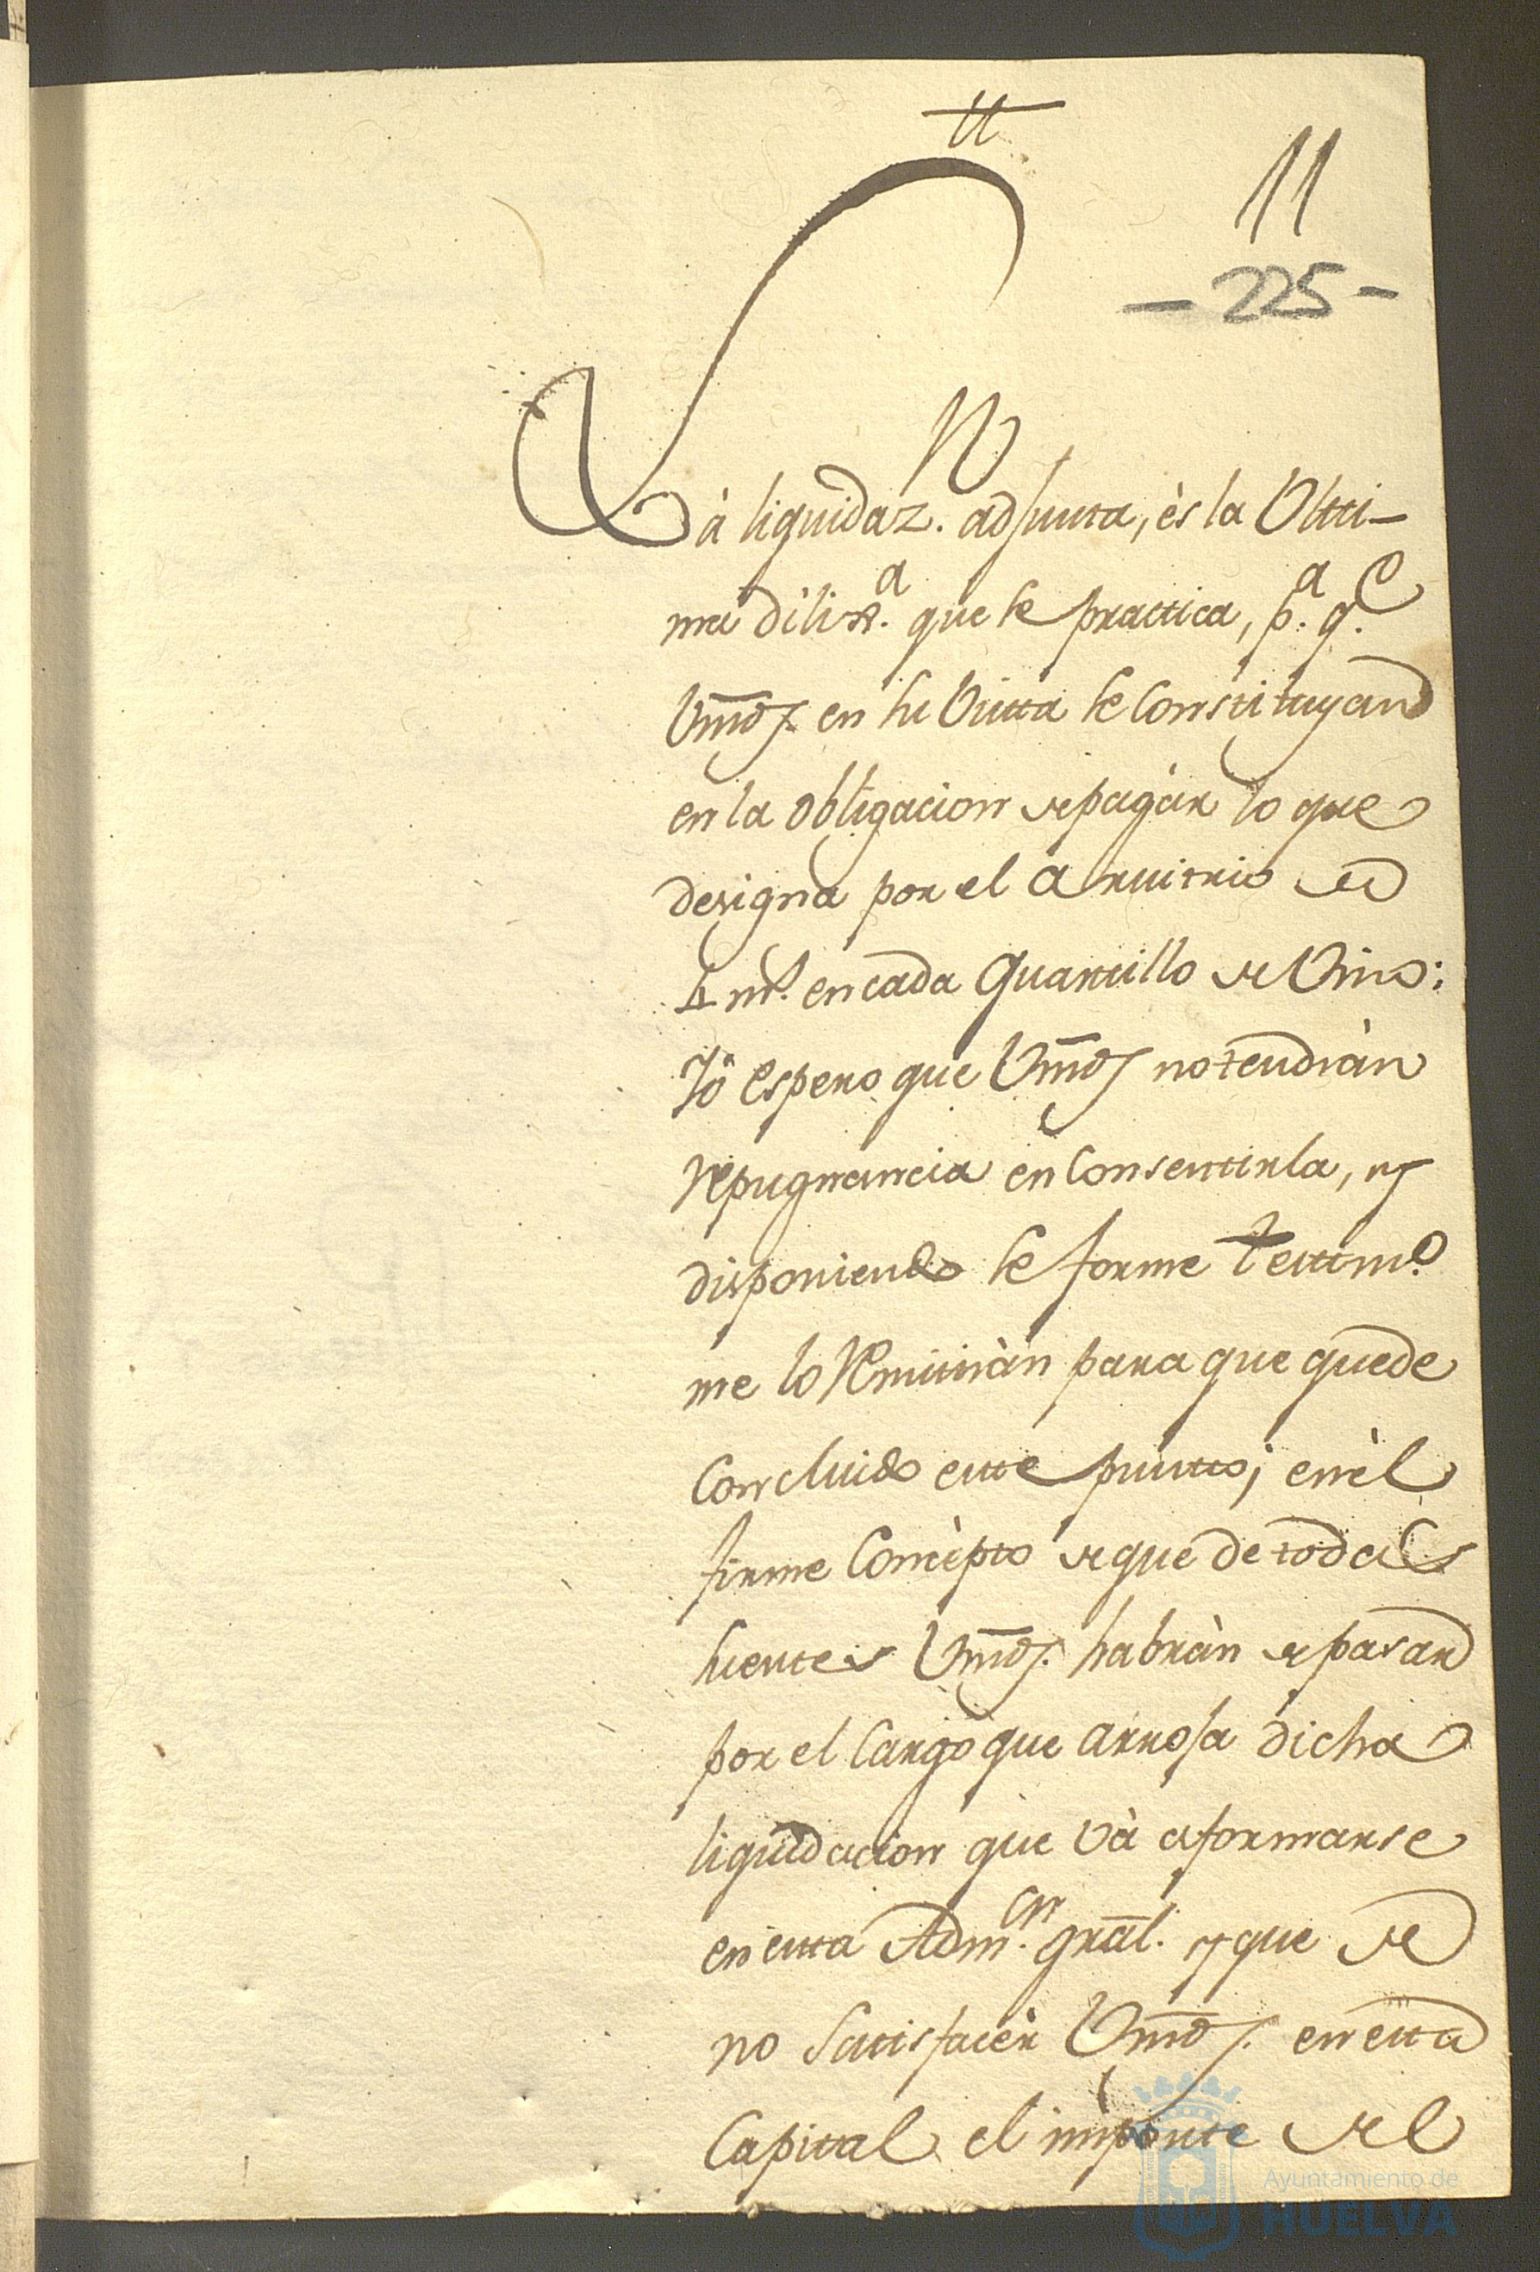 11
-225-
Là liquidaz.n adjunta, ès la Ultti-
ma diliz.a que se practtica, p.a q.e
Vmds. en su Vistta se Constituyan
en la obligacion de pagàr lo que
designa por el Aruitrio de
4 ms. en cada Quartillo de Vino:
Yô espero que Vmds no tendràn
repugnancia en Consentirla, y
disponiendo se forme testtim.o
me lo Remitiràn para que quede
Concluido estte puntto; en èl
firme Concèpto de que de todas
suertes Vmds. habràn de pasar
por el Cargo que arroja dicha
liquidacion que và a formarse
en estta Adm.on gral. y que de
no Satisfacèr Vmds. en estta
Capittal el importe del
Ayuntamiento de
HUELVA